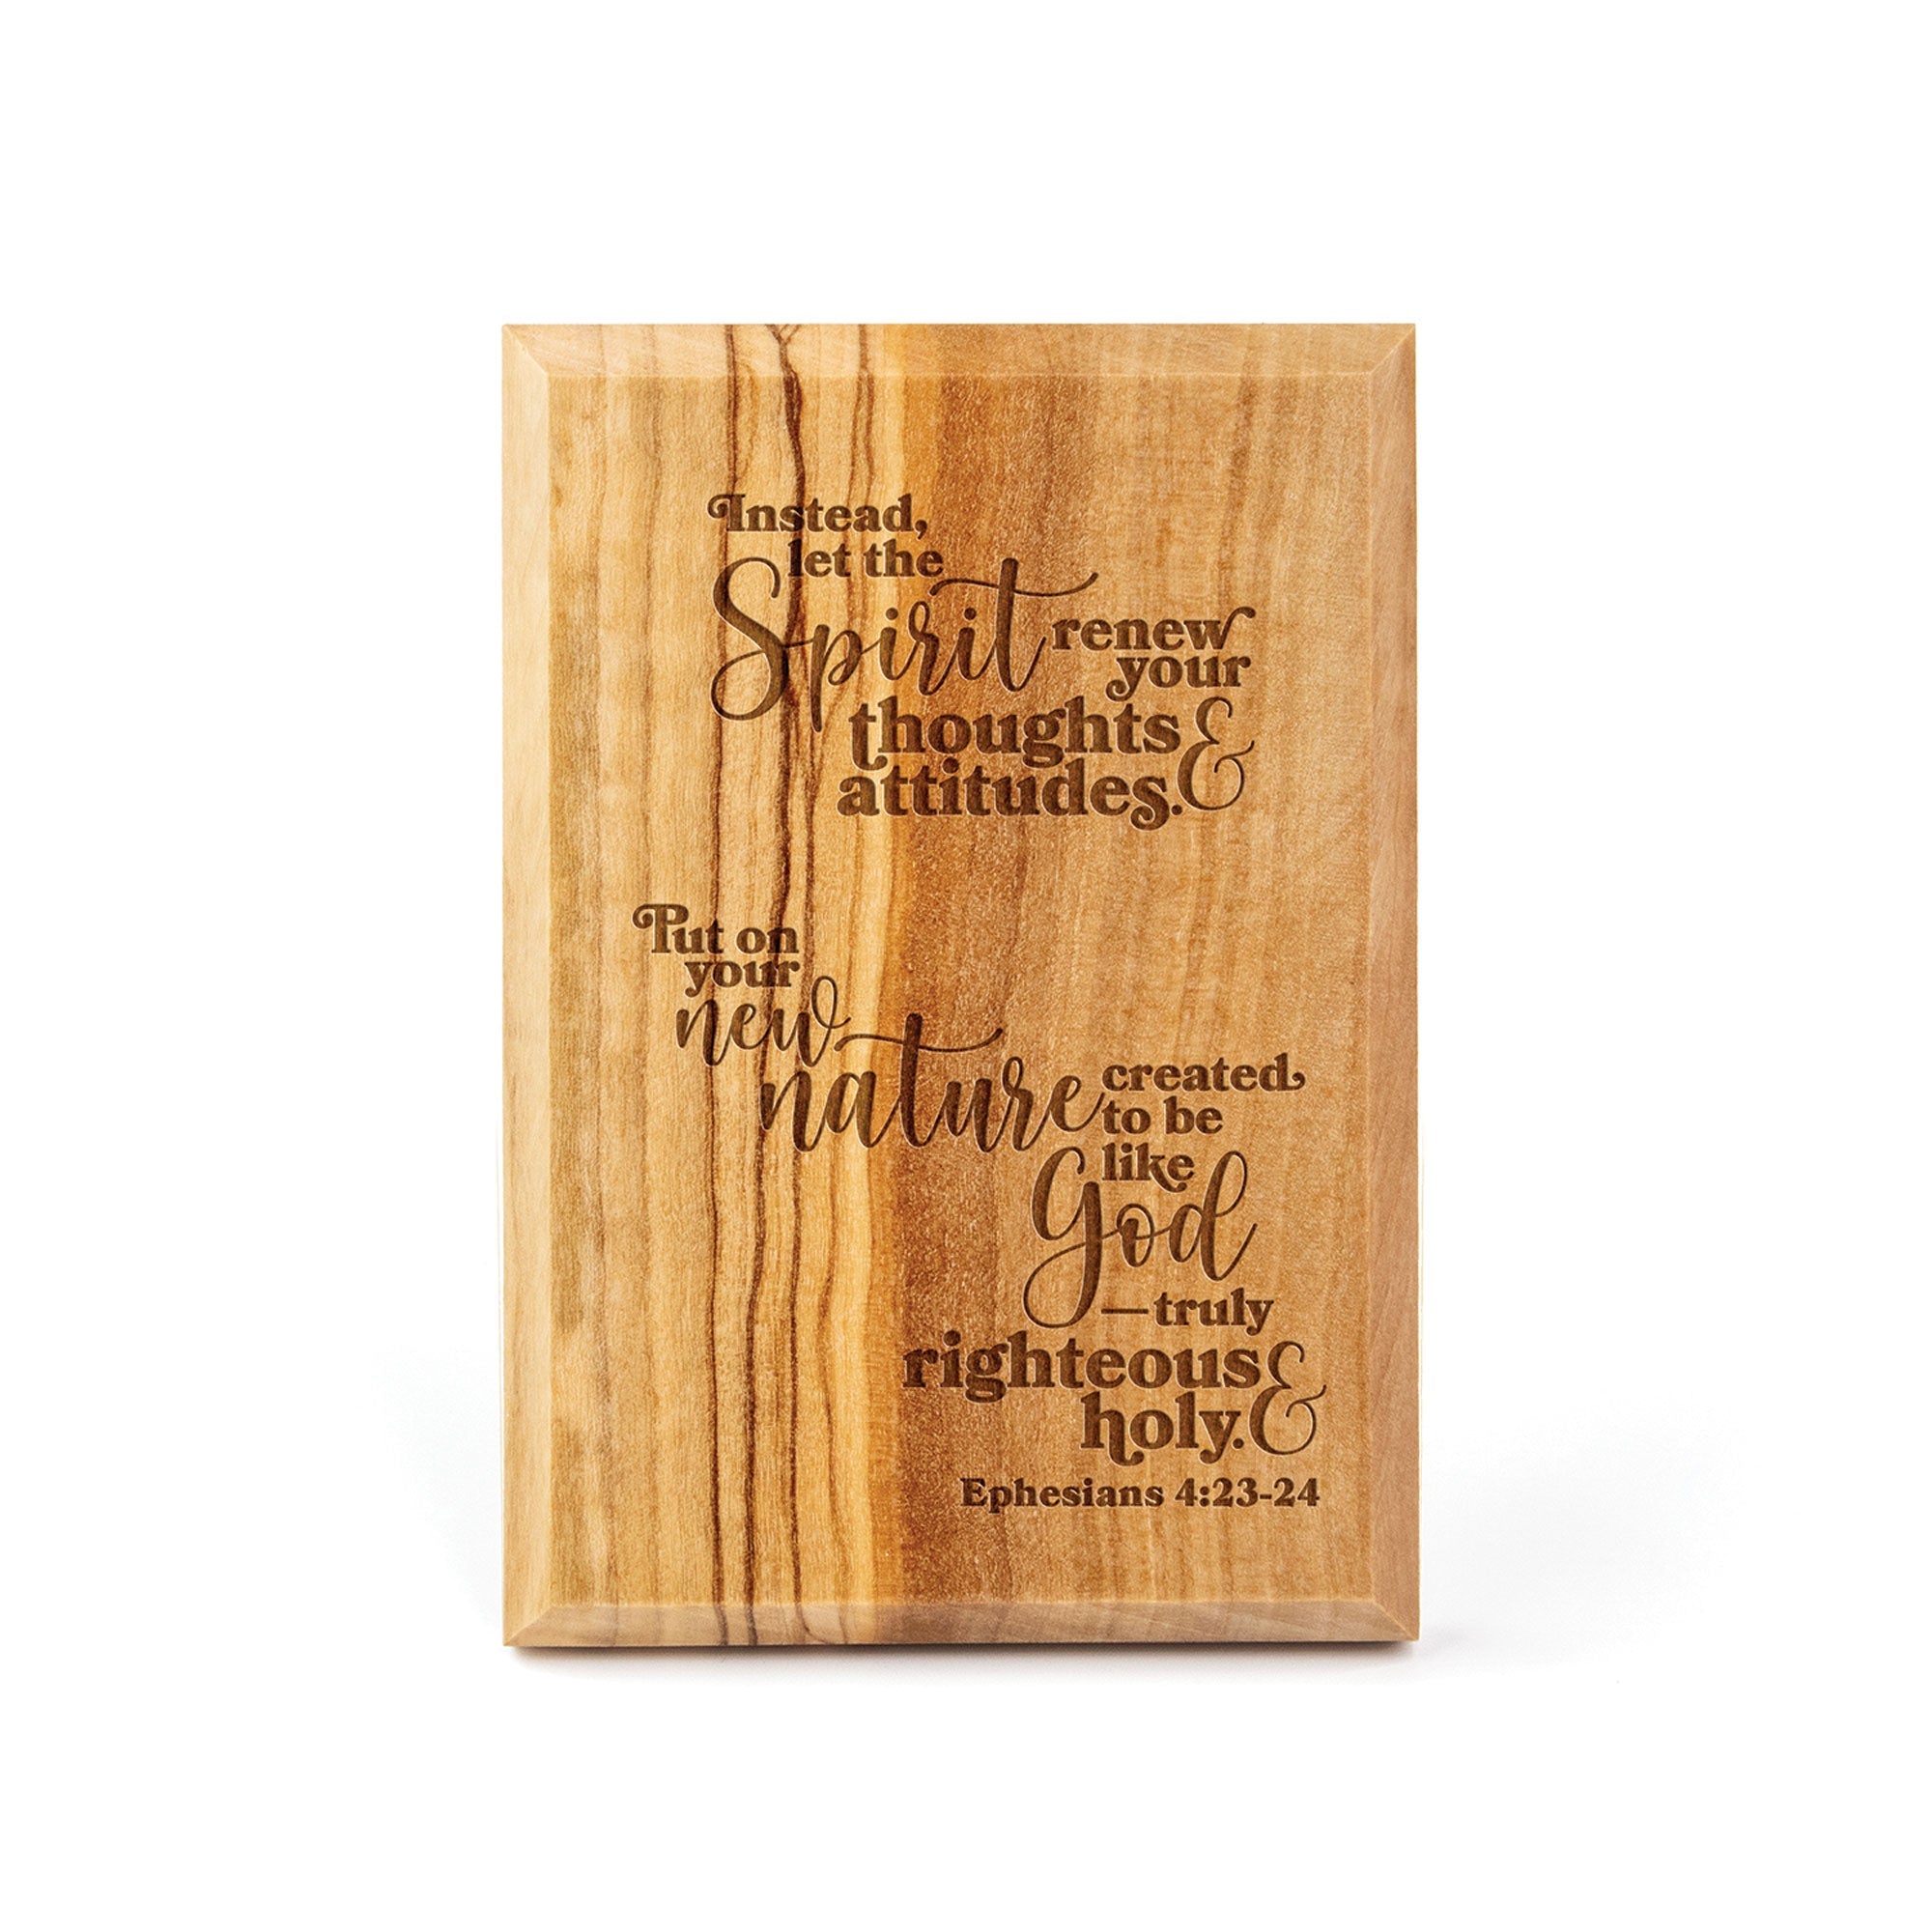 Instead,
let the
Spirit renew
your
thoughts &
attitudes.
Put on
your
new
nature created
to be
like
God
—truly
righteous &
holy.
Ephesians 4:23-24